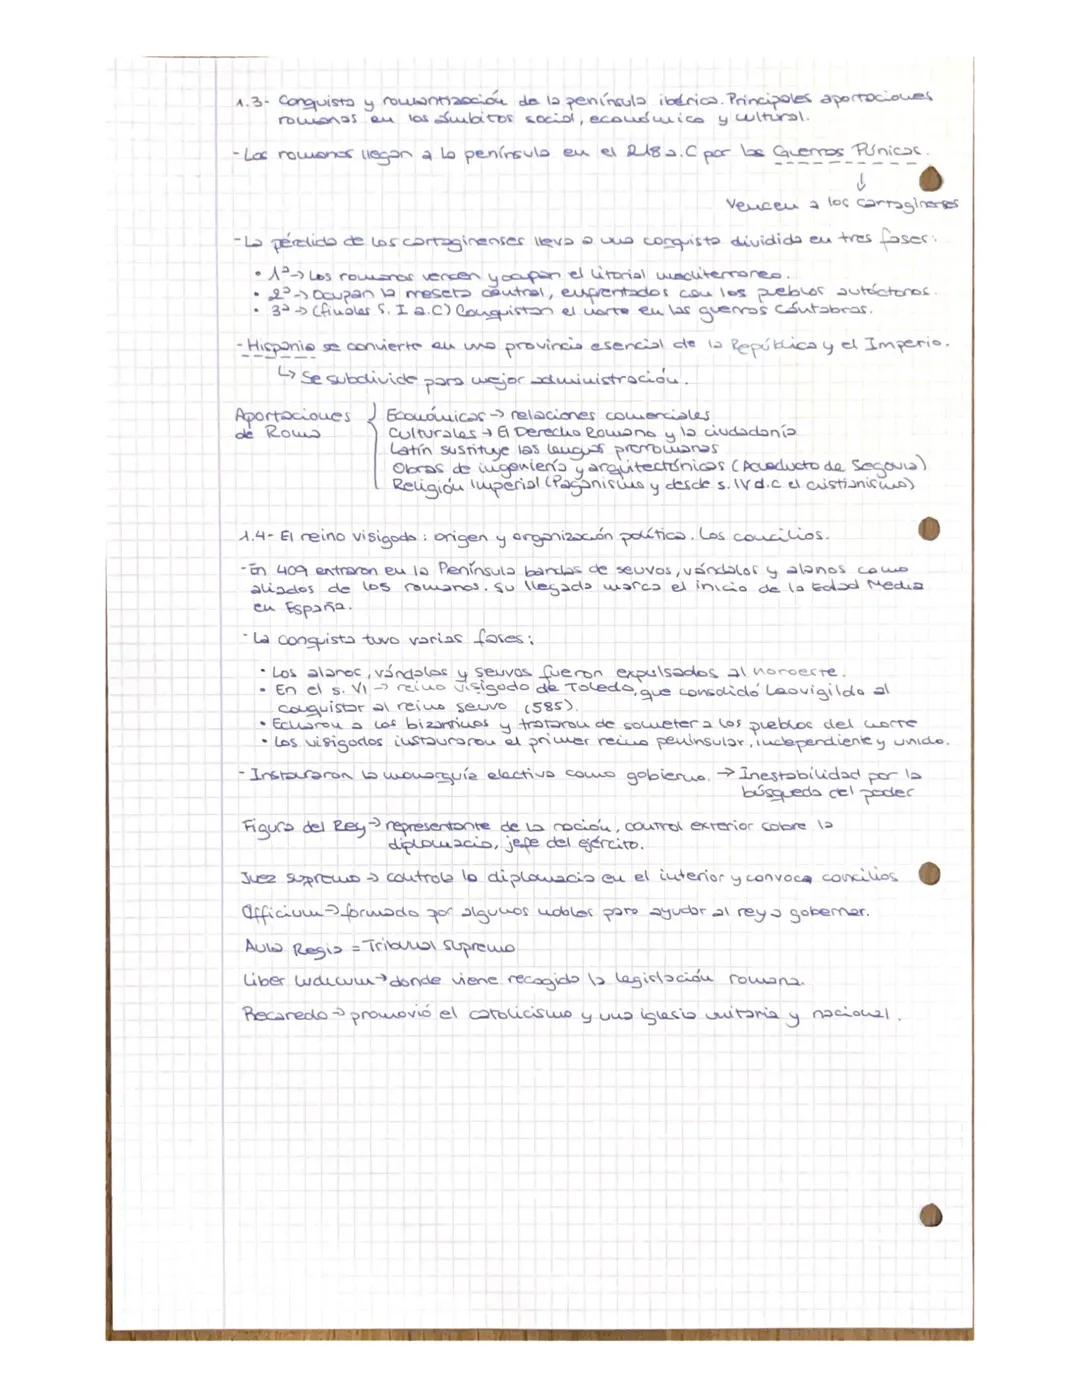 1.3- Conquista y romanización de la península ibérica. Principales aportaciones
romanas en los ámbitos social, económico y cultural.
- Los romanos llegan a la península en el 218 a.C por las Guerras Púnicas.
↓
Vencen a los cartagineses
- La pérdida de los cartaginenses lleva a una conquista dividida en tres fases:
• 1ª → Los romanos vencen y ocupan el litorial mediterraneo.
• 2ª → Ocupan la meseta central, enfrentados con los pueblos autóctonos.
• 3ª → (finales S. I a.C) Conquistan el norte en las guerras cántabras.
- Hispania se convierte en una provincia esencial de la República y el Imperio.
↳ Se subdivide para mejor administración.
Aportaciones de Roma { Económicas → relaciones comerciales
Culturales → El Derecho Romano y la ciudadanía
Latín sustituye las lenguas prerromanas
Obras de ingeniería y arquitectónicas (Acueducto de Segovia)
Religión Imperial (Paganismo y desde s. IV d.c el cristianismo)
1.4- El reino visigodo: origen y organización política. Los concilios.
- En 409 entraron en la Península bandas de seuvos, vándalos y alanos como
aliados de los romanos. Su llegada marca el inicio de la Edad Media
en España.
- La conquista tuvo varias fases:
• Los alanos, vándalos y seuvos fueron expulsados al noroeste.
• En el s. VI → reino visigodo de Toledo, que consolidó Leovigildo al
conquistar al reino seuvo (585).
• Echaron a los bizantinos y trataron de someter a los pueblos del norte
• Los visigodos instauraron el primer reino peninsular, independiente y unido.
- Instauraron la monarquía electiva como gobierno. → Inestabilidad por la
búsqueda del poder
Figura del Rey → representante de la nación, control exterior sobre la
diplomacia, jefe del ejército.
Juez supremo → controla la diplomacia en el interior y convoca concilios
Officium → formado por algunos nobles para ayudar al rey a gobernar.
Aula Regia = Tribunal Supremo
Liber Iudicum → donde viene recogida la legislación romana.
Recaredo → promovió el catolicismo y una iglesia unitaria y nacional.